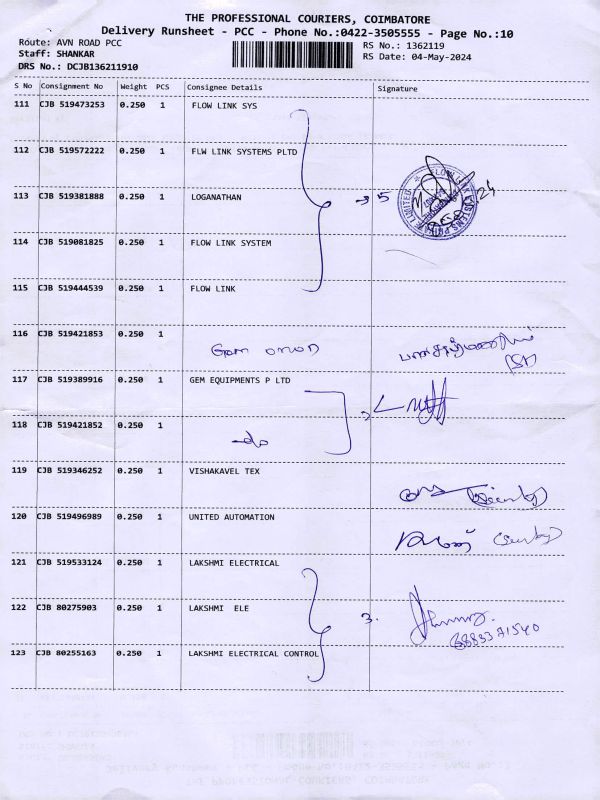 THE PROFESSIONAL COURIERS, COIMBATORE
Delivery Runsheet - PCC - Phone No.:0422-3505555 - Page No.:10
Route: AVN ROAD PCC
RS No.: 1362119
Staff: SHANKAR
RS Date: 04-May-2024
DRS No.: DCJB136211910
S No Consignment No Weight PCS Consignee Details Signature
111 CJB 519473253 0.250 1 FLOW LINK SYS
112 CJB 519572222 0.250 1 FLW LINK SYSTEMS PLTD
113 CJB 519381888 0.250 1 LOGANATHAN → 5
114 CJB 519081825 0.250 1 FLOW LINK SYSTEM
115 CJB 519444539 0.250 1 FLOW LINK
116 CJB 519421853 0.250 1
117 CJB 519389916 0.250 1 GEM EQUIPMENTS P LTD
118 CJB 519421852 0.250 1 -do
119 CJB 519346252 0.250 1 VISHAKAVEL TEX
120 CJB 519496989 0.250 1 UNITED AUTOMATION
121 CJB 519533124 0.250 1 LAKSHMI ELECTRICAL
122 CJB 80275903 0.250 1 LAKSHMI ELE 3.
123 CJB 80255163 0.250 1 LAKSHMI ELECTRICAL CONTROL